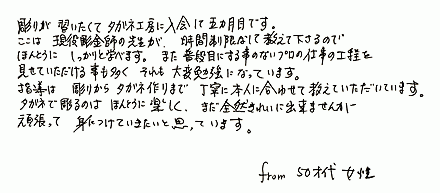 彫りが習いたくてタガネ工房に入会して五カ月目です。
ここは現役彫金師の先生が、時間制限なしで教えて下さるので
ほんとうにしっかりと学べます。また普段目にする事のないプロの仕事の工程を
見せていただける事も多くそれも大変勉強になっています。
指導は彫りからタガネ作りまで丁寧に本人に合わせて教えていただいています。
タガネで彫るのはほんとうに楽しく、まだ全然きれいに出来ませんが
頑張って身につけていきたいと思っています。
from 50才代 女性